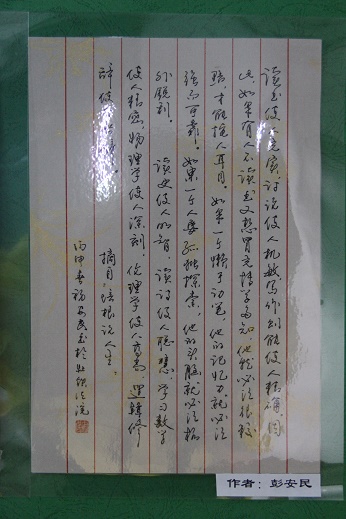 读书使人充实,讨论使人机敏,写作则能使人精确。因
此,如果有人不读书又想冒充博学多知,他就必须很狡
猾,才能掩人耳目。如果一个懒于动笔,他的记忆力就必须
强而可靠。如果一个人要孤独探索,他的头脑就必须格
外锐利。 读史使人明智,读诗使人聪慧,学习数学
使人精密,物理学使人深刻,伦理学使人高尚,逻辑修
辞使人
摘自《培根论人生》
丙申春 彭安民书于 法院
作者:彭安民